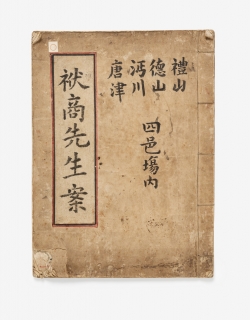 禮山
德山
沔川
唐津
四邑場內
袱商先生案